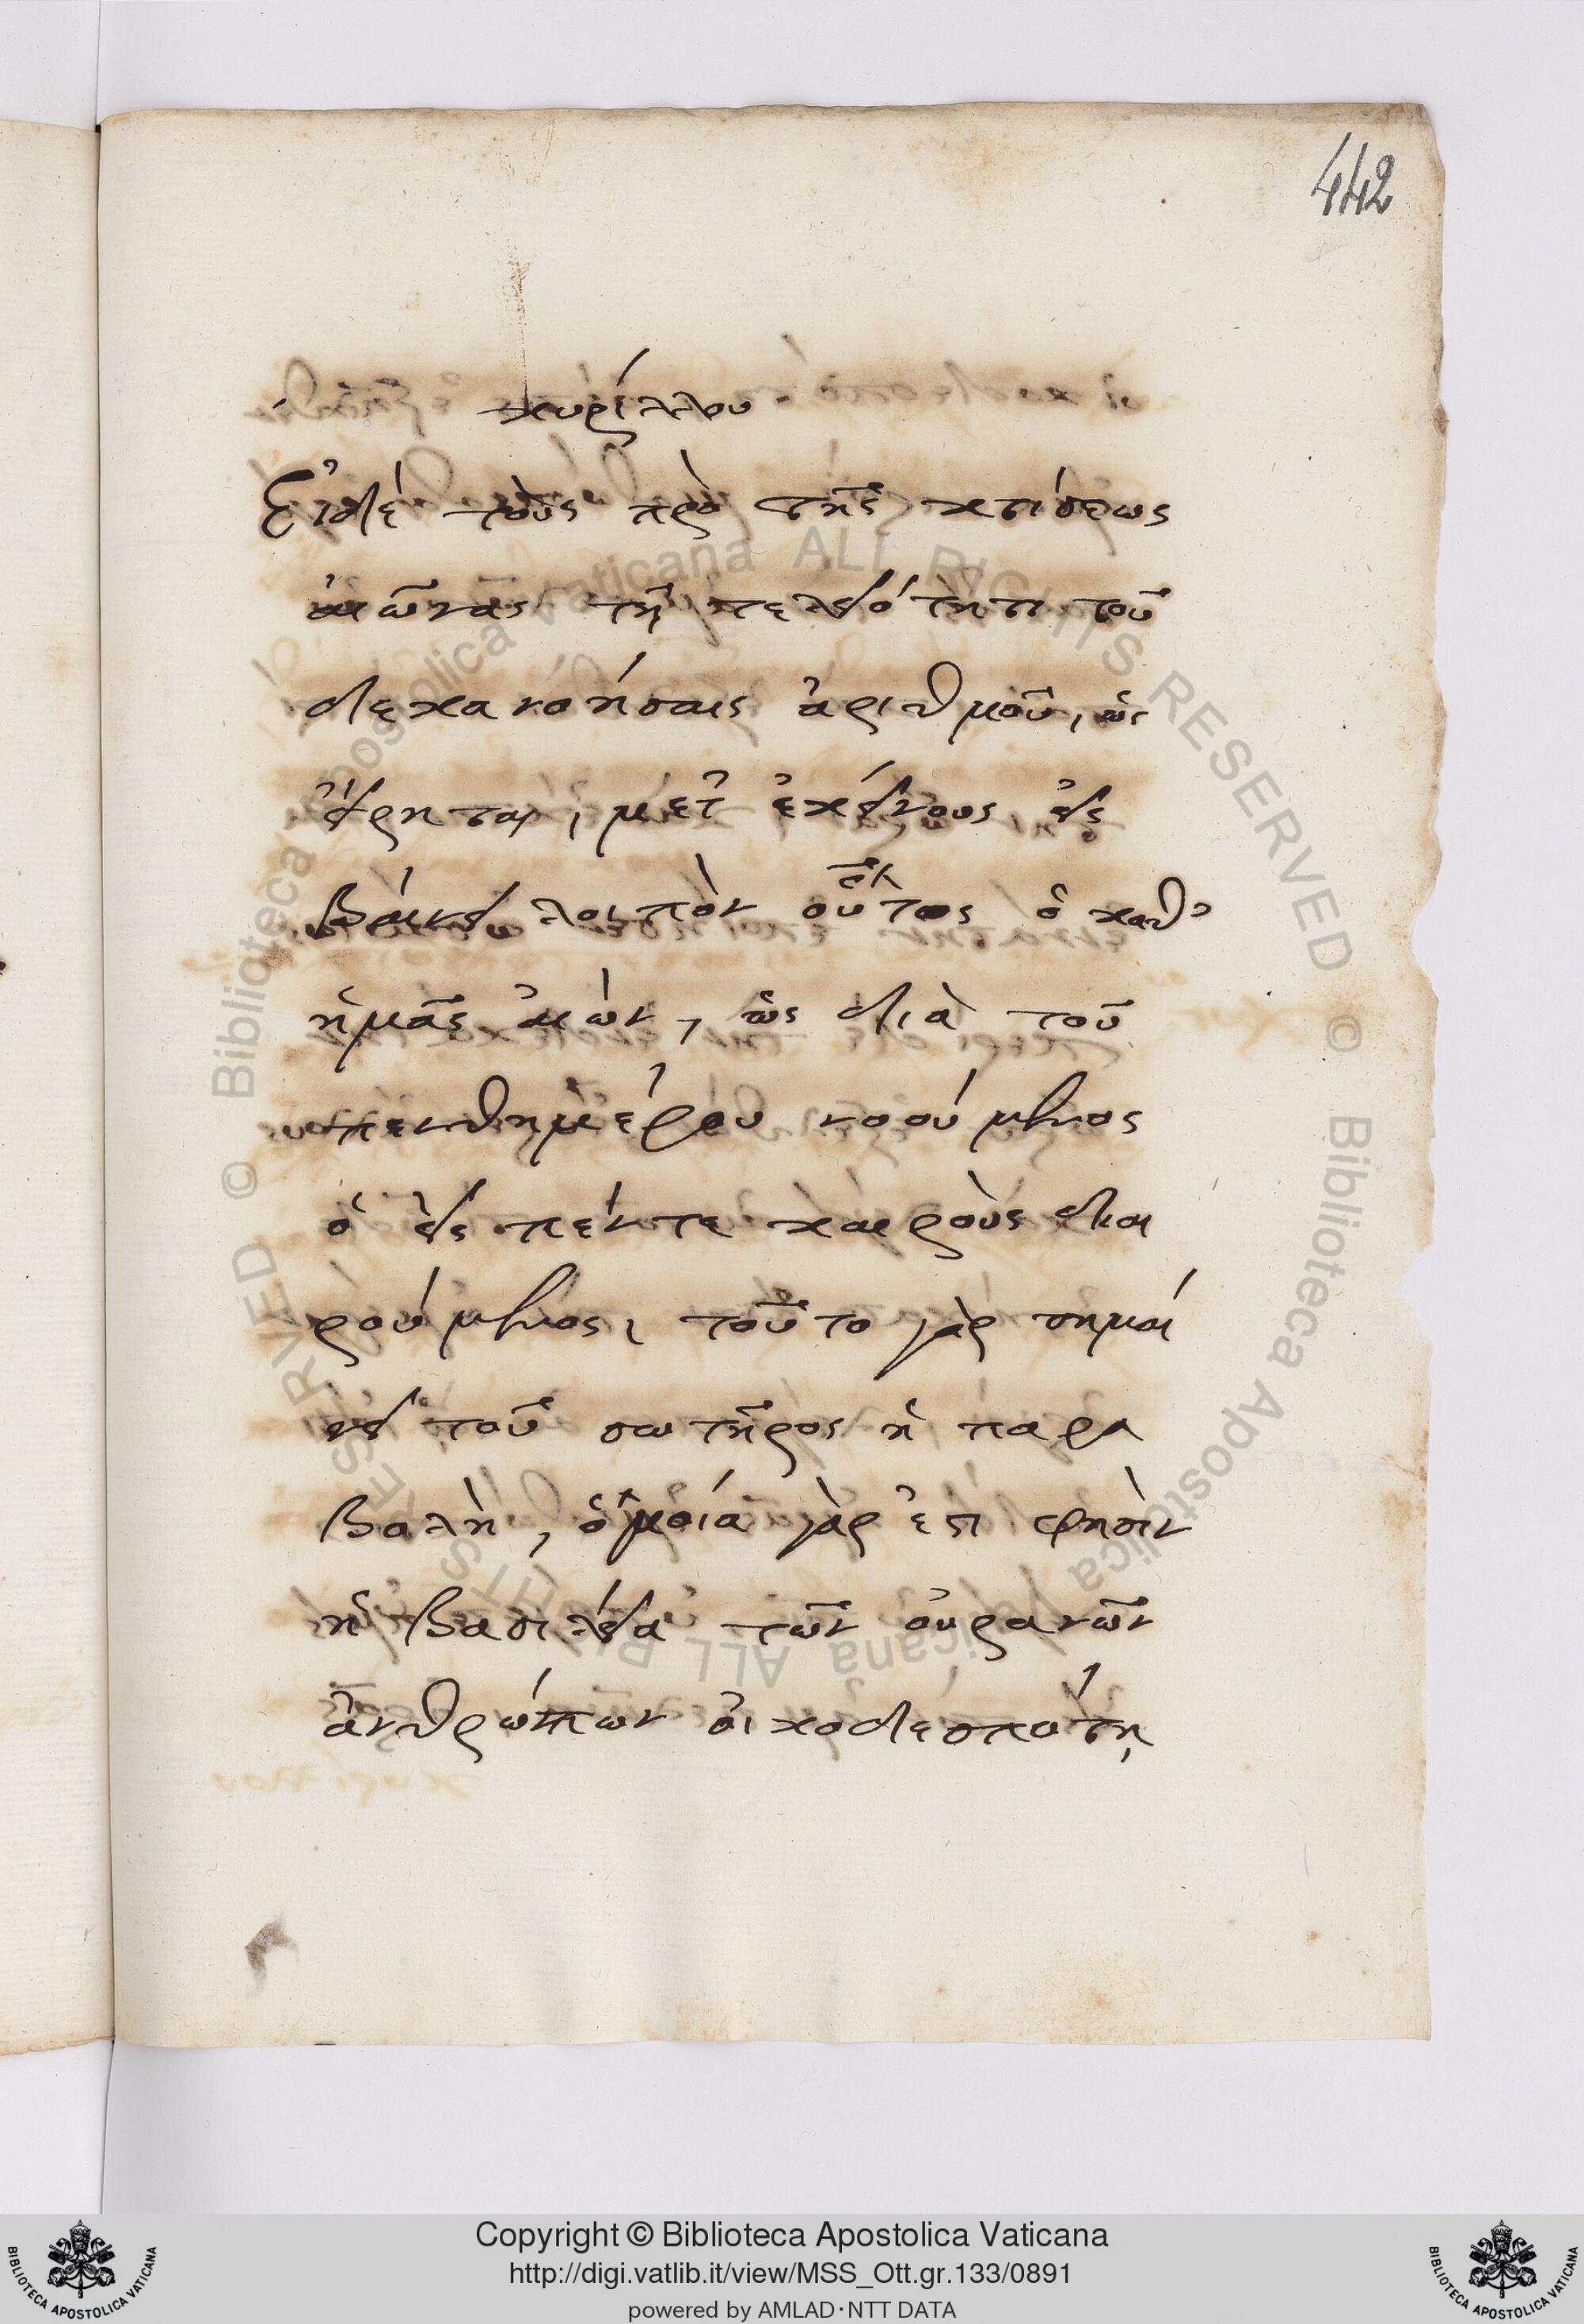 442
κυρίλλου
Εἰ δέ τοὺς πρὸ τῆς κτίσεως
αἰῶνας τῇ τελειότητι τοῦ
δεκα νοήσαις ἀριθμοῦ, ὡς
εἴρηται, μετ' ἐκείνους εἰς
βαίνει λοιπὸν οὗτος ὁ καθ'
ἡμᾶς αἰὼν, ὡς διὰ τοῦ
πενθημέρου νοούμενος
ὁ εἰς πέντε καιροὺς διαι
ρούμενος, τοῦτο γὰρ σημαί
νει τοῦ σωτῆρος ἡ παρα
βολὴ, ὁμοία γὰρ ἐστι φησὶν
ἡ βασιλεία τῶν οὐρανῶν
ἀνθρώπων οἰκοδεσπότῃ
Copyright © Biblioteca Apostolica Vaticana
http://digi.vatlib.it/view/MSS_Ott.gr.133/0891
powered by AMLAD・NTT DATA
BIBLIOTECA APOSTOLICA VATICANA
BIBLIOTECA APOSTOLICA VATICANA
© Biblioteca Apostolica Vaticana ALL RIGHTS RESERVED
© Biblioteca Apostolica Vaticana ALL RIGHTS RESERVED